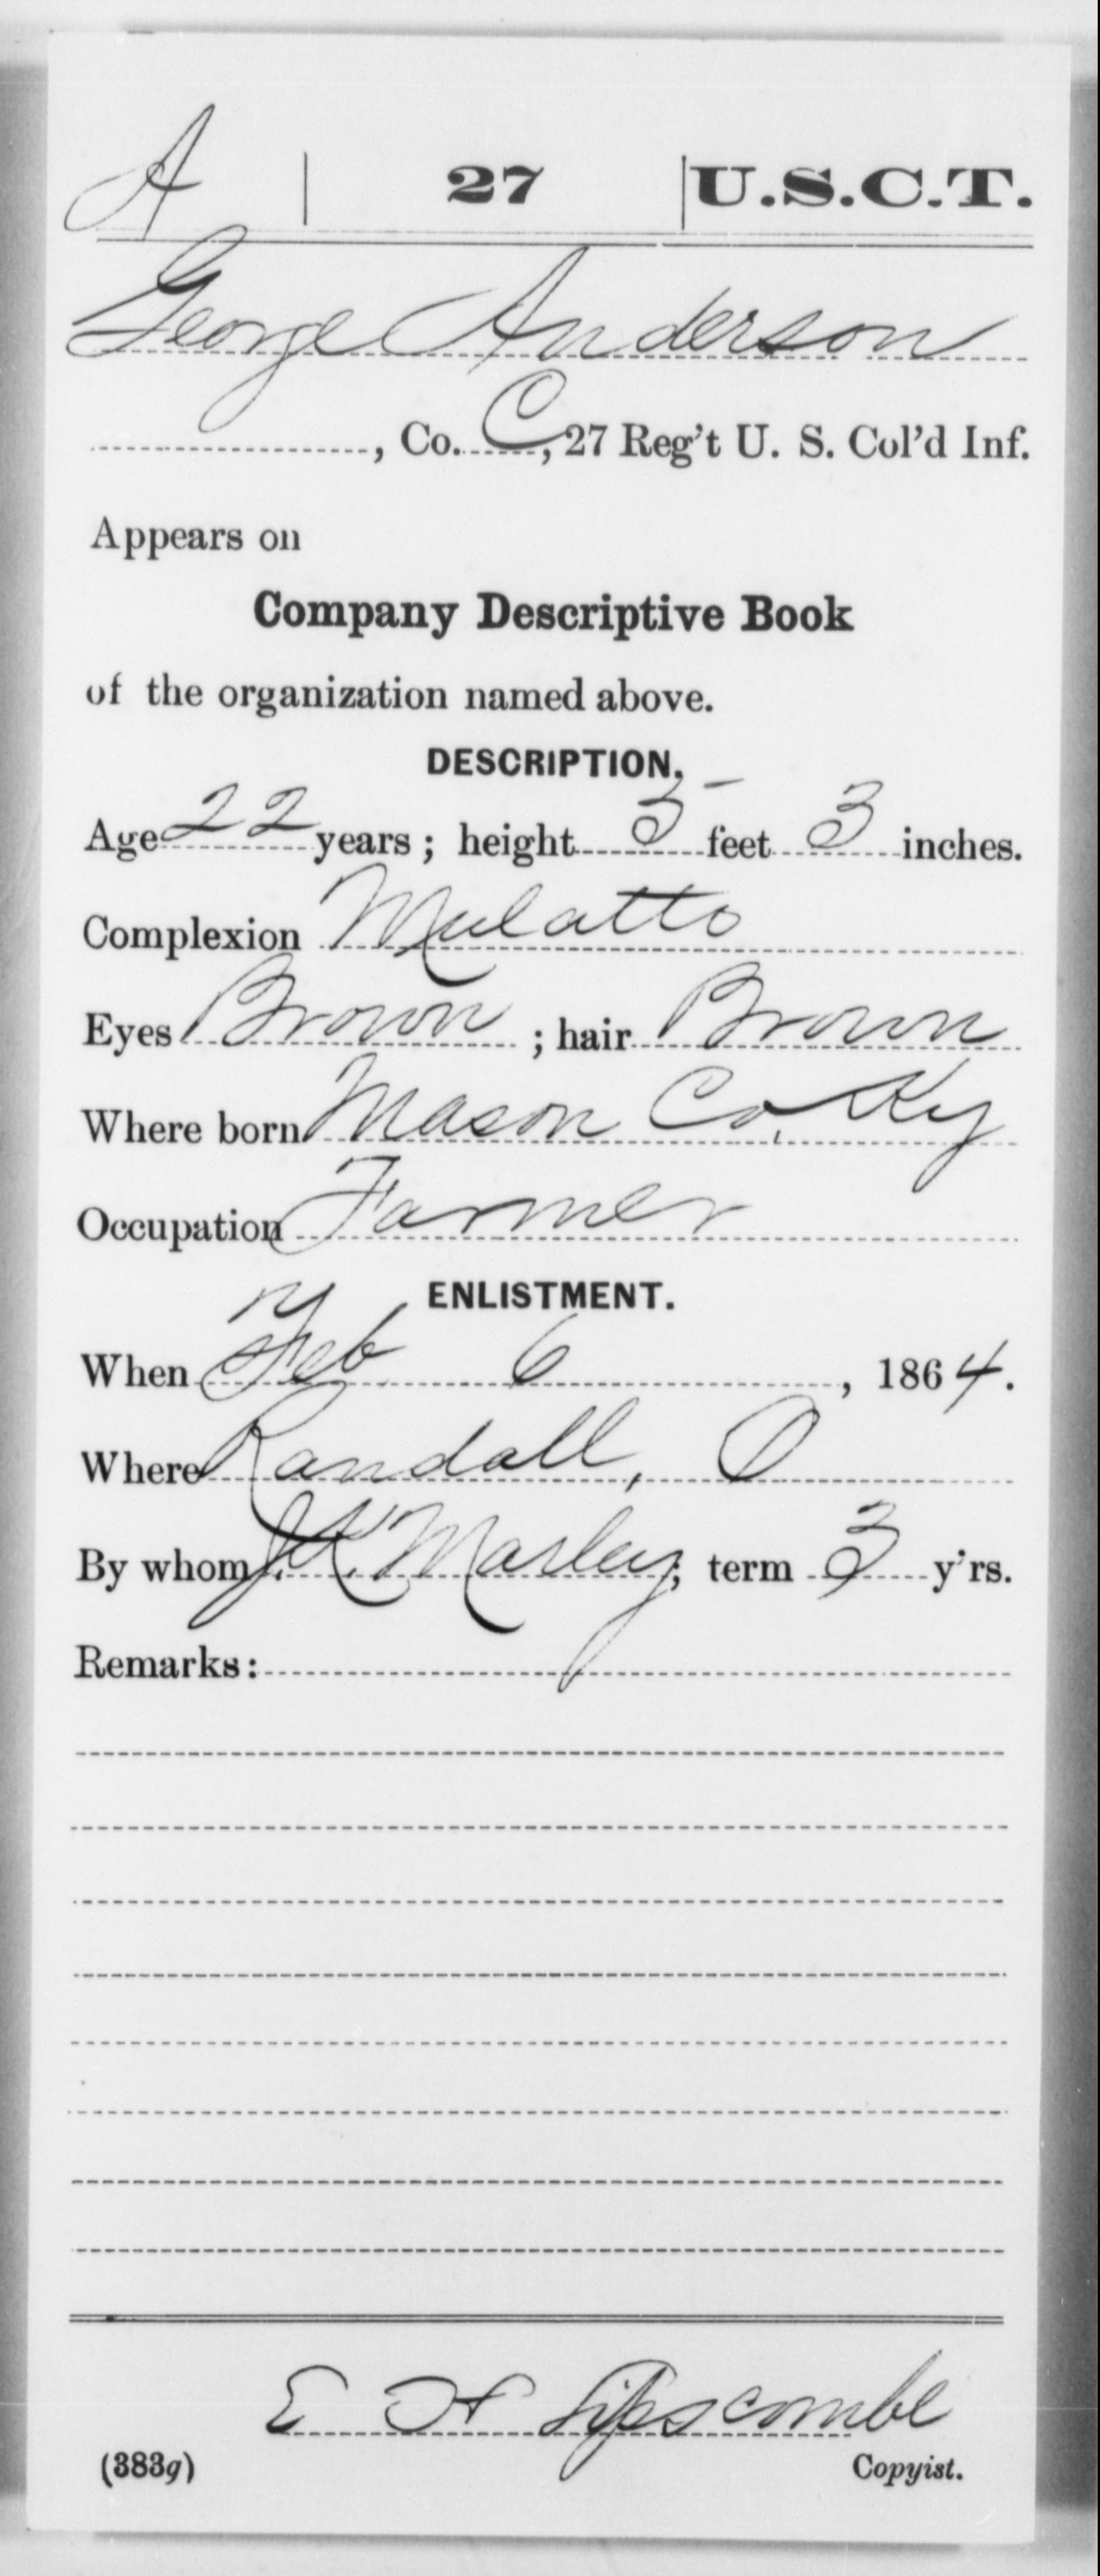 A | 27 | U.S.C.T.
George Anderson
, Co. C, 27 Reg't U. S. Col'd Inf.
Appears on
Company Descriptive Book
of the organization named above.
DESCRIPTION.
Age 22 years; height 5 feet 3 inches.
Complexion Mulatto
Eyes Brown; hair Brown
Where born Mason Co, Ky
Occupation Farmer
ENLISTMENT.
When Feb 6, 1864.
Where Randall, O
By whom Marley; term 3 y'rs.
Remarks:
E H Lipscombe
(383g) Copyist.